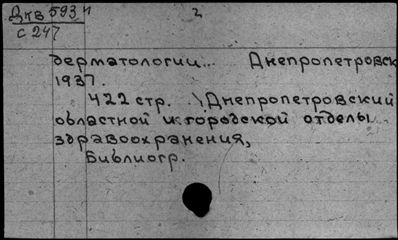 Дкв 593 и 2
с 247
дерматологии... Днепропетровск
1937.
422 стр. \Днепропетровский
областной и городской отделы
здравоохранения,
Библиогр.